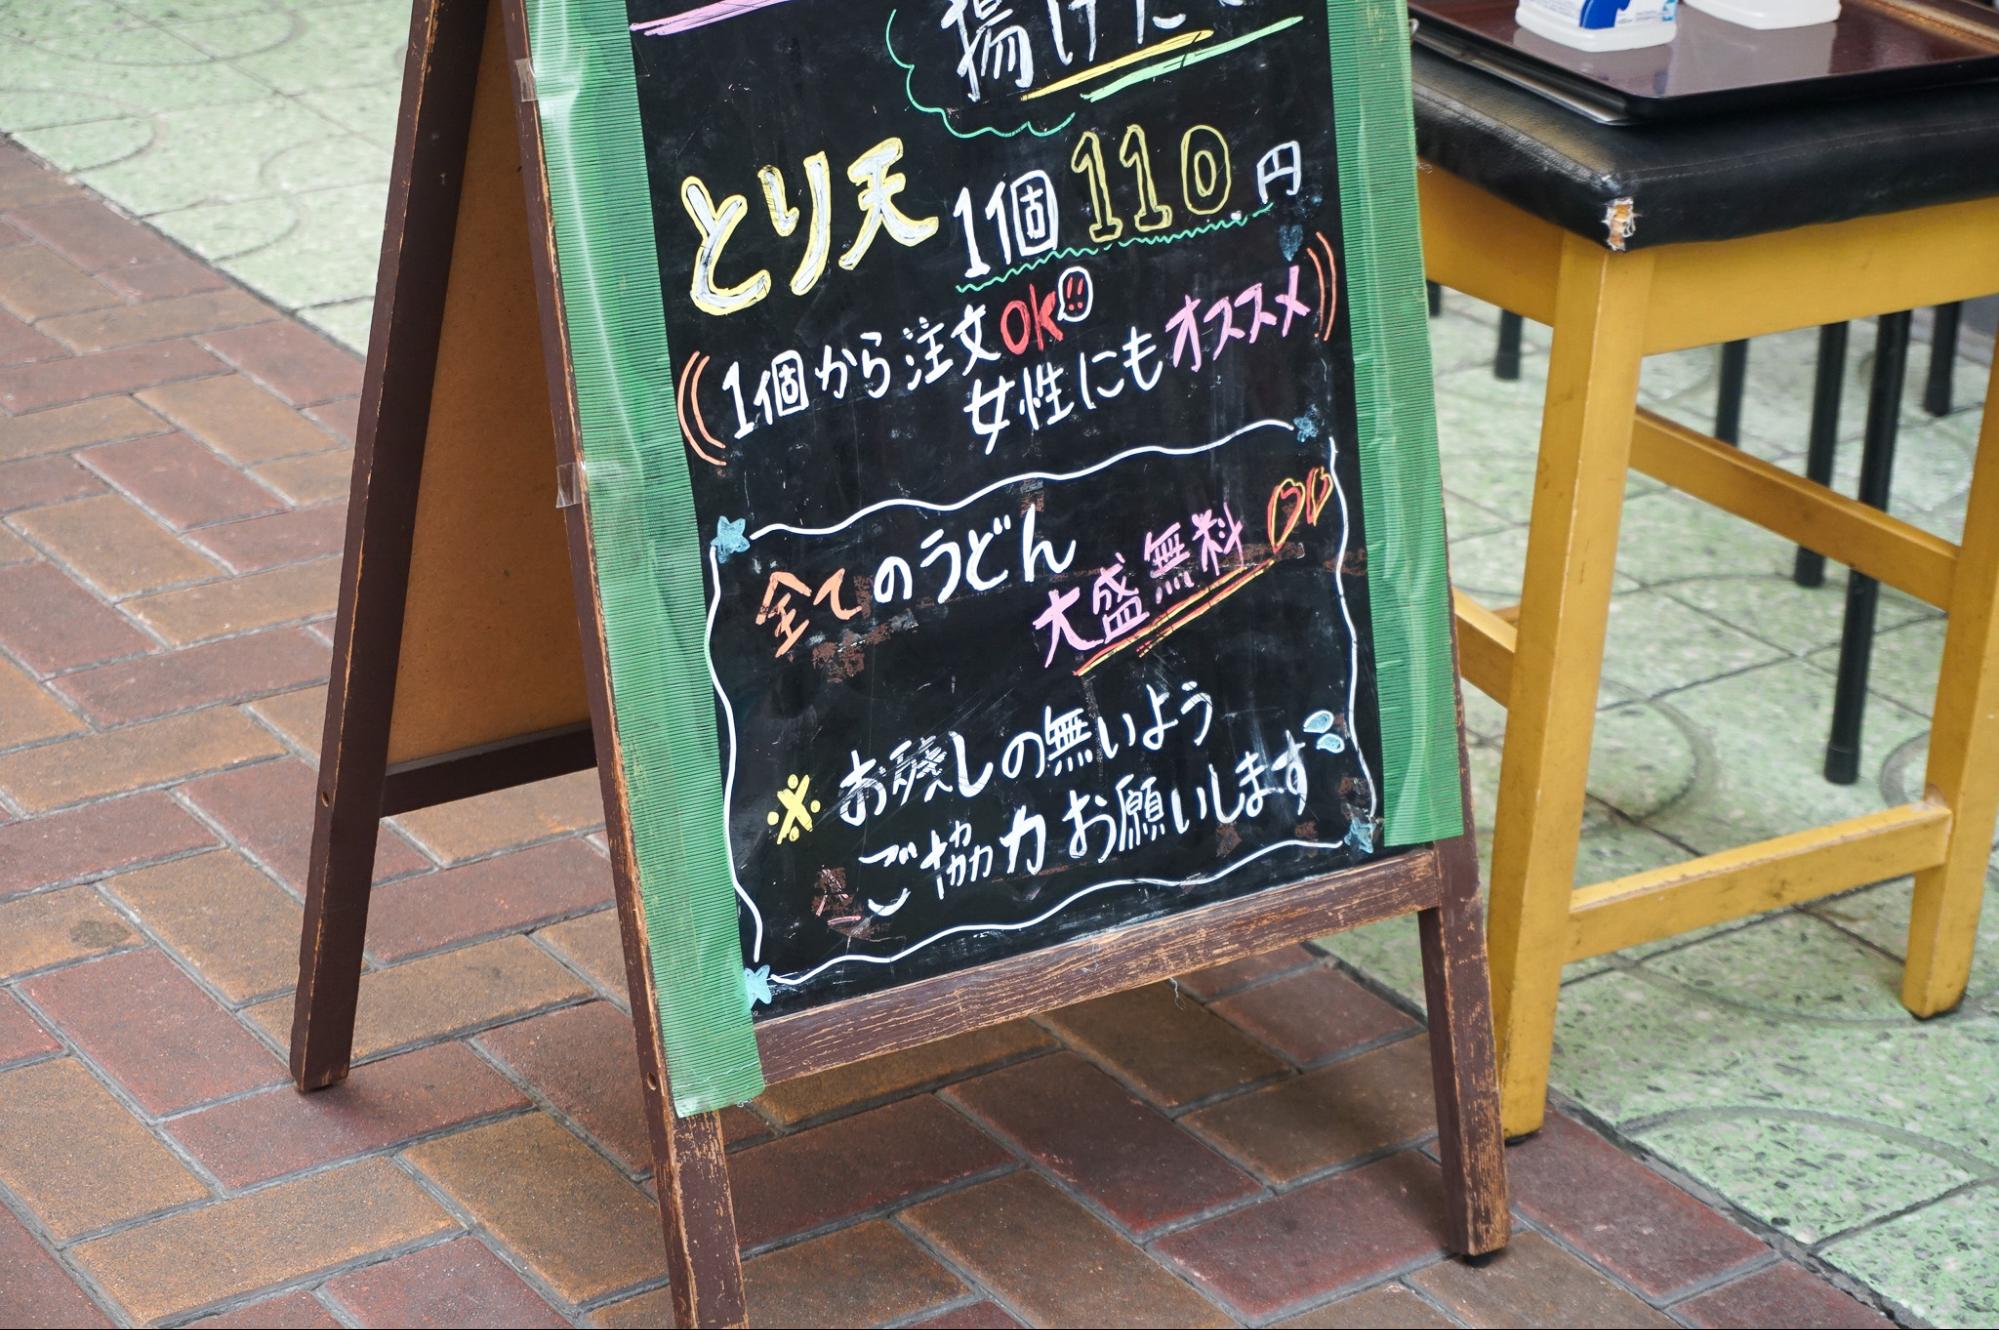 揚げたて
とり天 1個 110円
1個から注文OK!!
女性にもオススメ
全てのうどん
大盛無料
※お残しの無いよう
ご協力お願いします